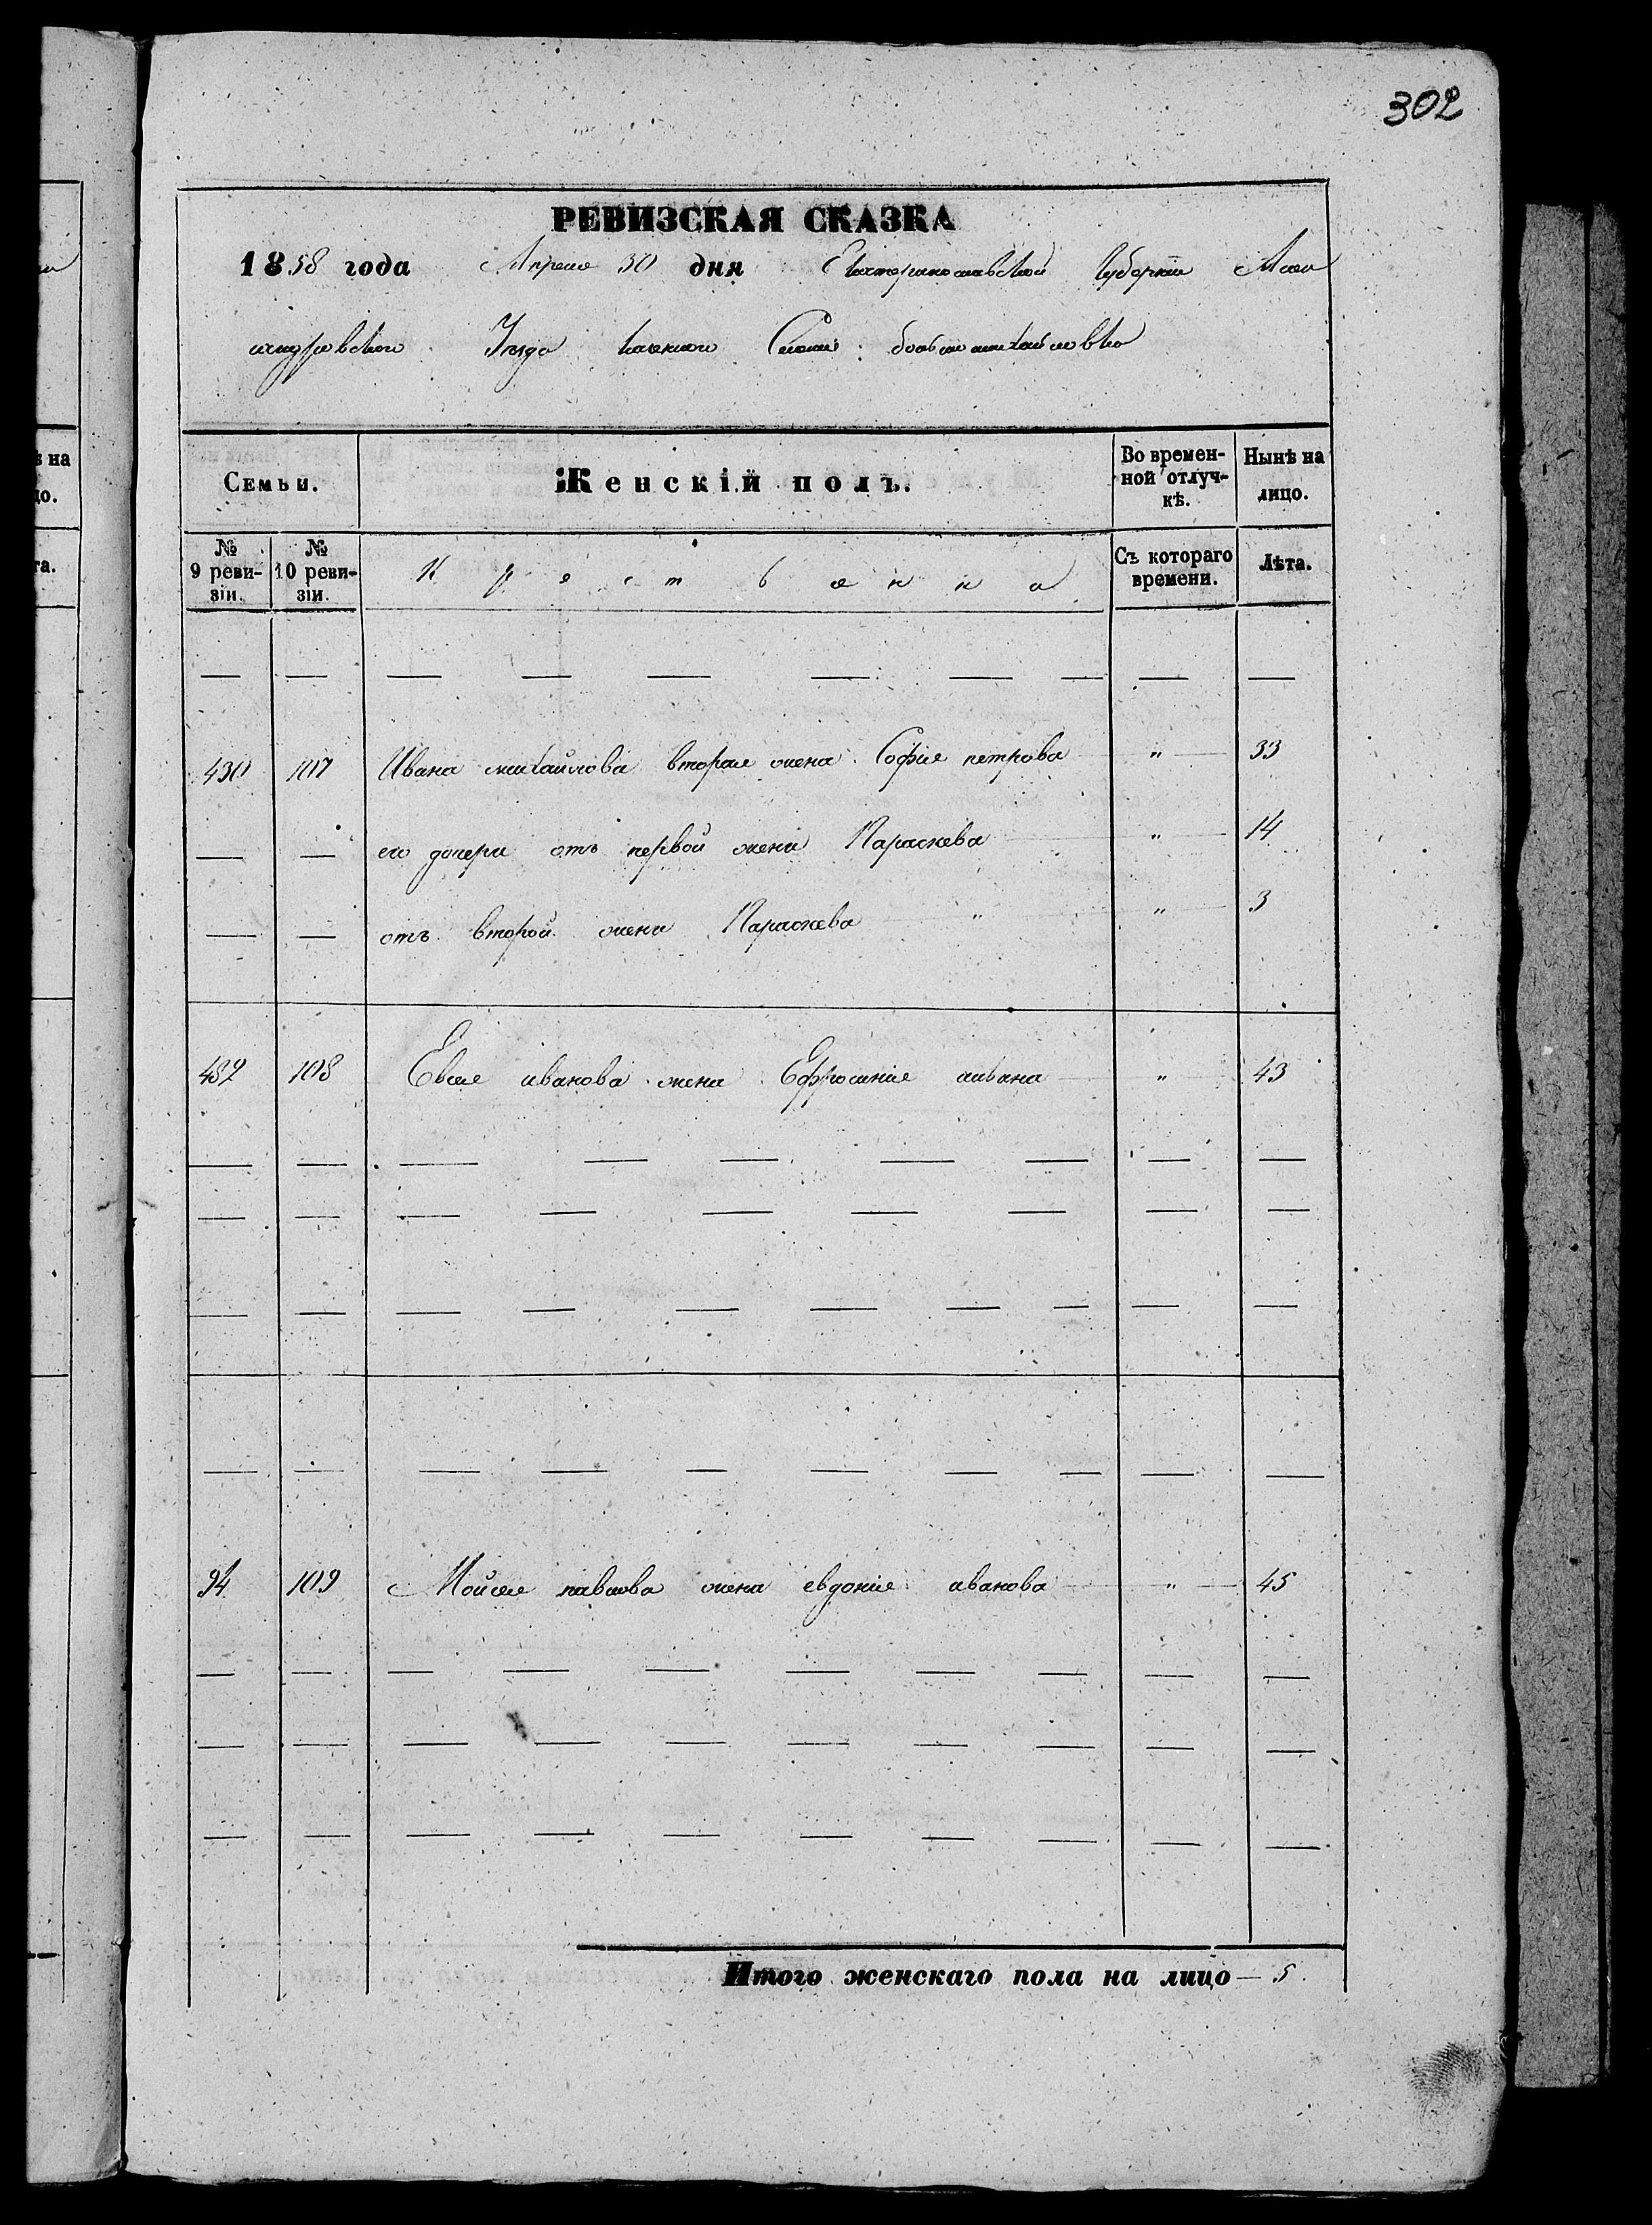 302
РЕВИЗСКАЯ СКАЗКА
1858 года Апреля 30 дня Екатеринославской Губернїи Алек
сандровского Уезда казенного Селенія большомихайловка
Семьи. Женскій полъ. Во времен-ной отлуч-кѣ. Нынѣ на лицо.
№ 9 реви-зіи. № 10 реви-зіи. Крестьянка Съ котораго времени. Лѣта.
430 107 Ивана михайлова вторая жена Софія петрова " 33
— — его дочери отъ первой жени Параскева " 14
— — отъ второй жени Параскева " " 3
432 108 Евсея иванова жена Ефросинія " 43
94 109 Мойсея павлова жена евдокія иванова " 45
Итого женскаго пола на лицо — 5.
на
цо.
та.